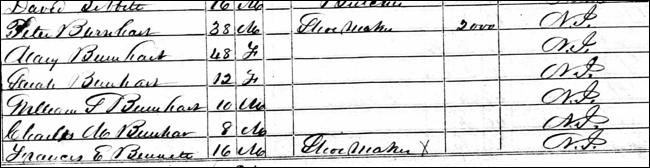 David 16 M
Peter Burnhart 38 M Shoe Maker 2000 N.J.
Mary Burnhart 48 F N.J.
Sarah Burnhart 12 F N.J.
William F Burnhart 10 M N.J.
Charles M Burnhar 8 M N.J.
Frances E Bennett 16 M Shoe Maker X N.J.